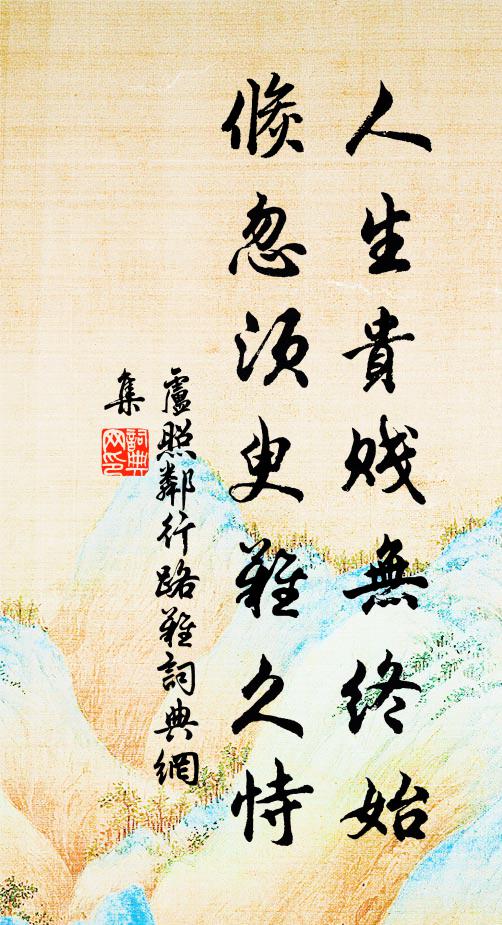 人生貴賤無終始
倏忽須臾難久恃
盧照鄰行路難詞典網
集
詞典
網印